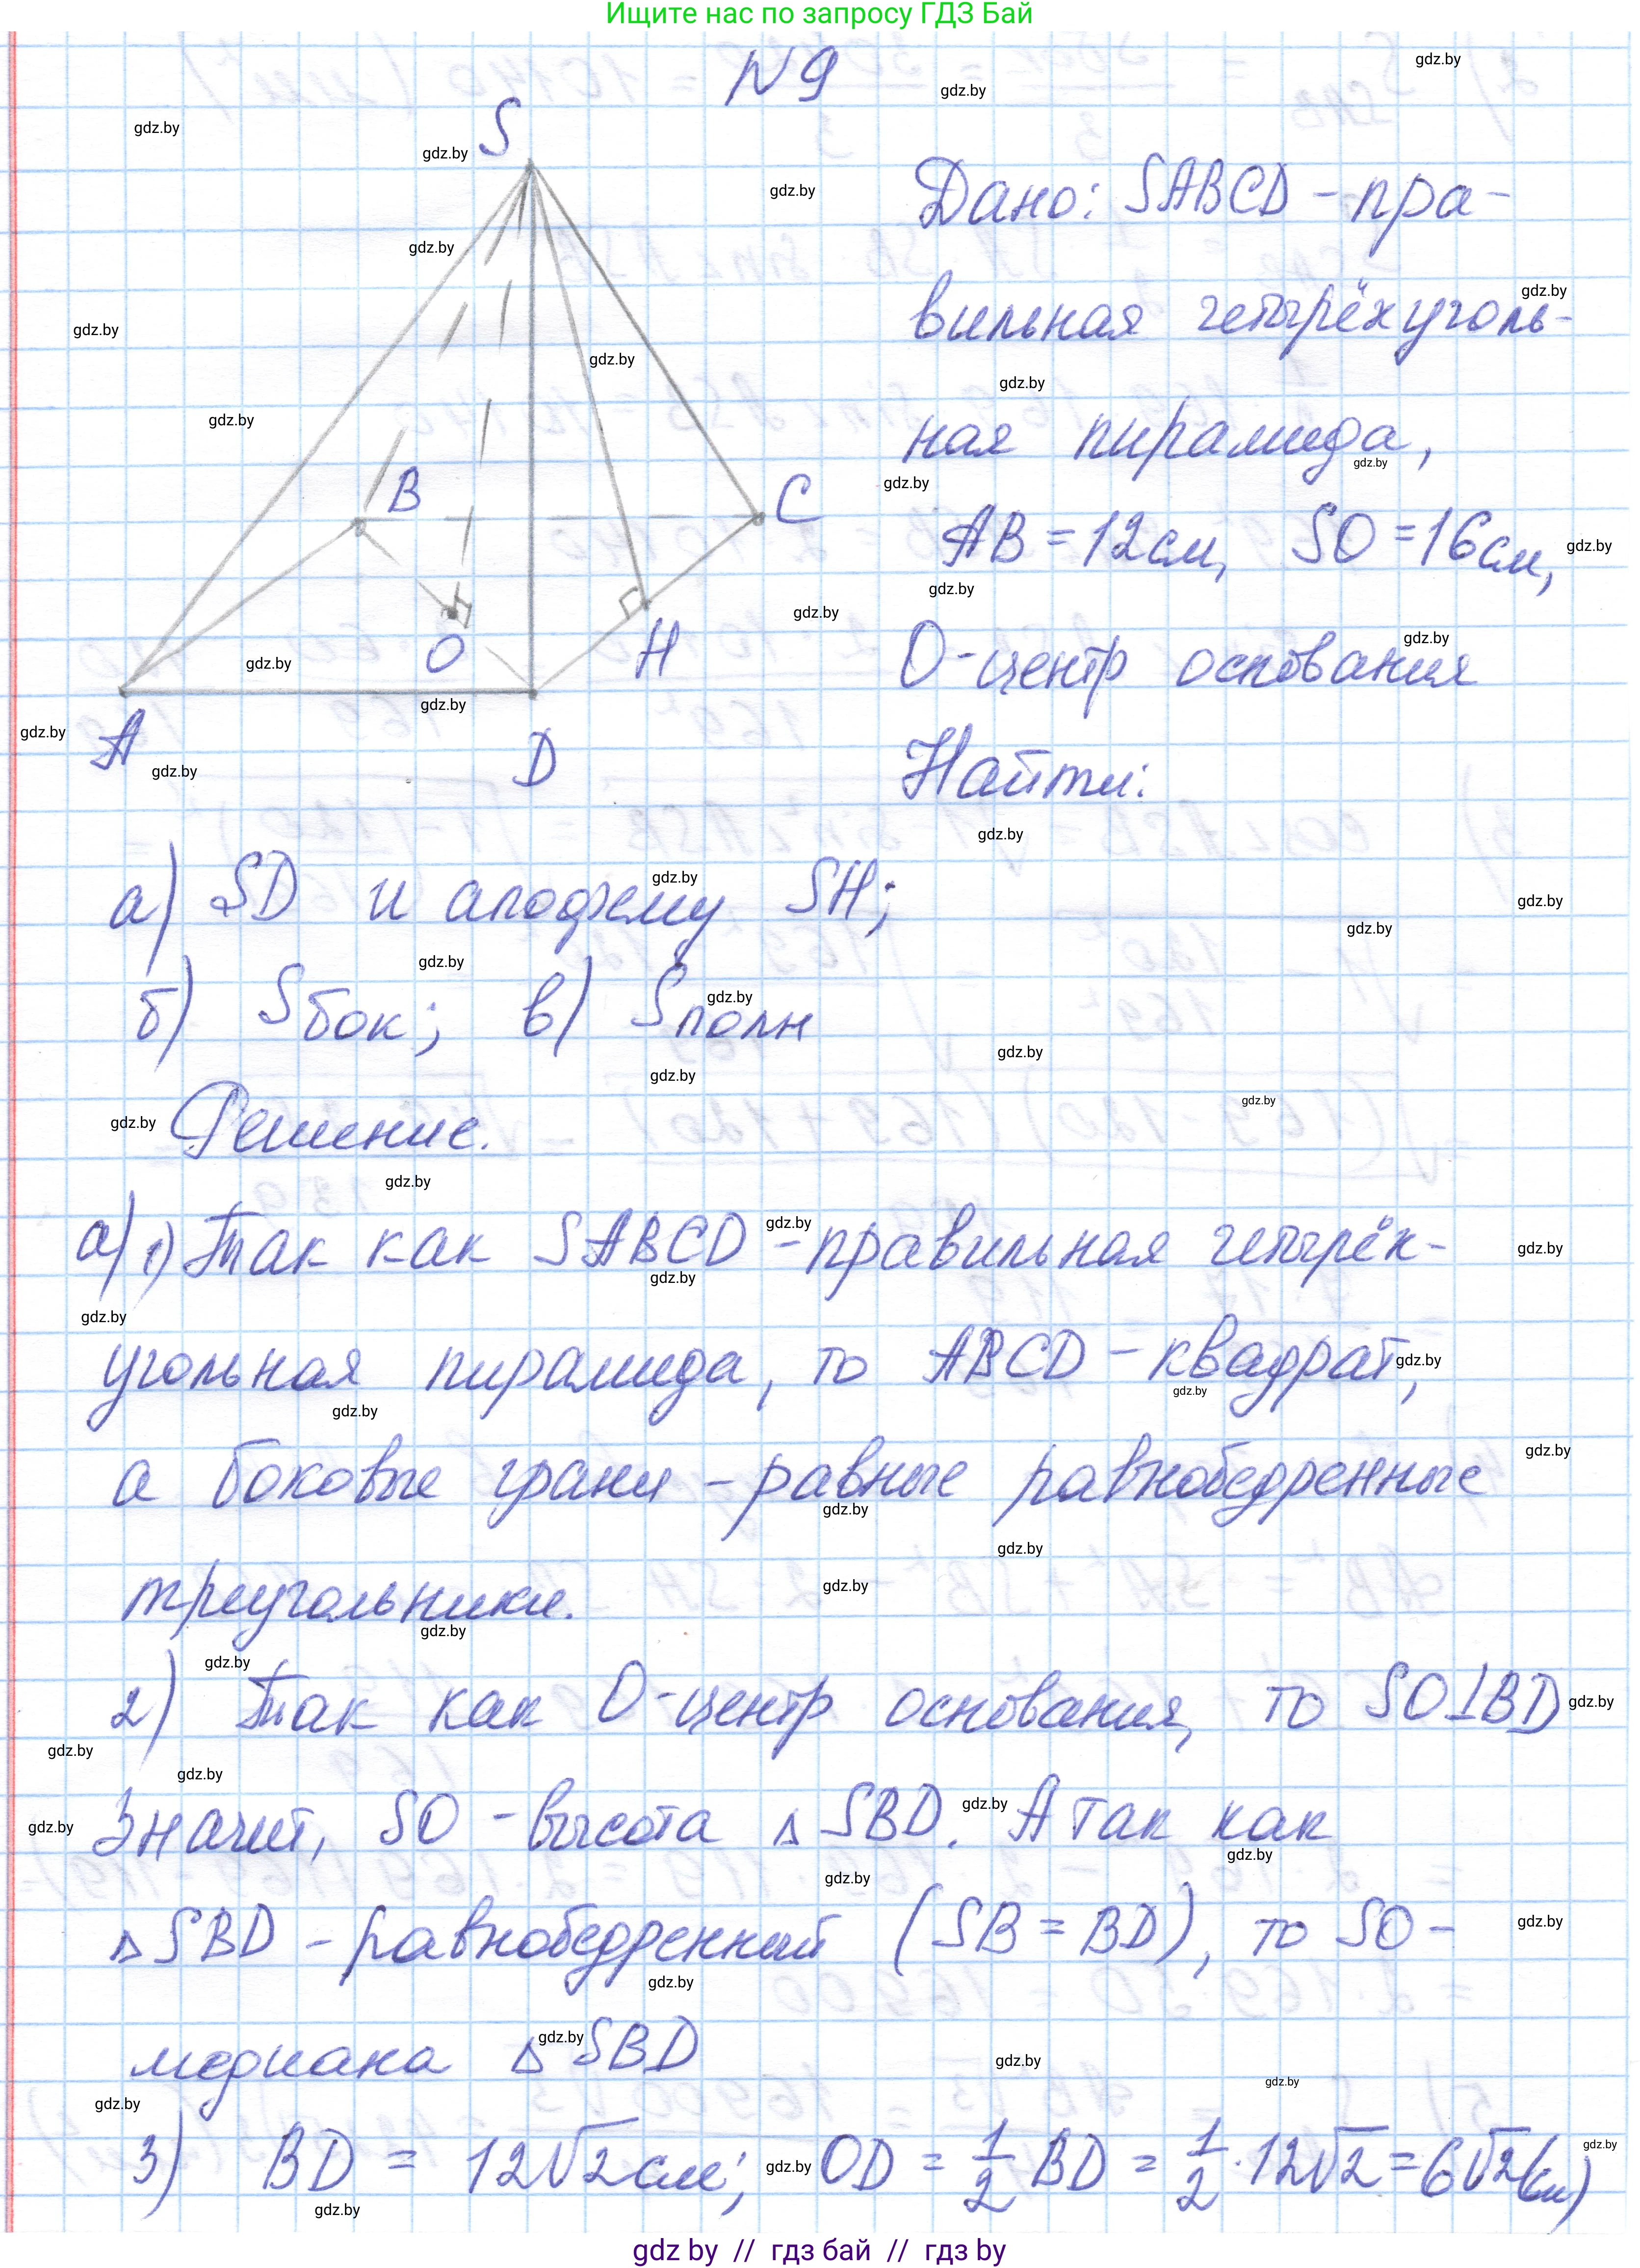 Ищите нас по запросу ГДЗ Бай
N 9
S
Дано: SABCD - пра-
вильная четырёхуголь-
ная пирамида,
AB = 12 см, SO = 16 см,
O - центр основания
Найти:
B
C
O
H
A
D
а) SD и апофему SH;
б) Sбок; в) Sполн
Решение.
а) 1) Так как SABCD - правильная четырёх-
угольная пирамида, то ABCD - квадрат,
а боковые грани - равные равнобедренные
треугольники.
2) Так как O - центр основания, то SO⊥BD
Значит, SO - высота △ SBD. А так как
△ SBD - равнобедренный (SB = BD), то SO -
медиана △ SBD
3) BD = 12√2 см; OD = 1/2 BD = 1/2 · 12√2 = 6√2 (см)
gdz.by
gdz by // гдз бай // гдз by